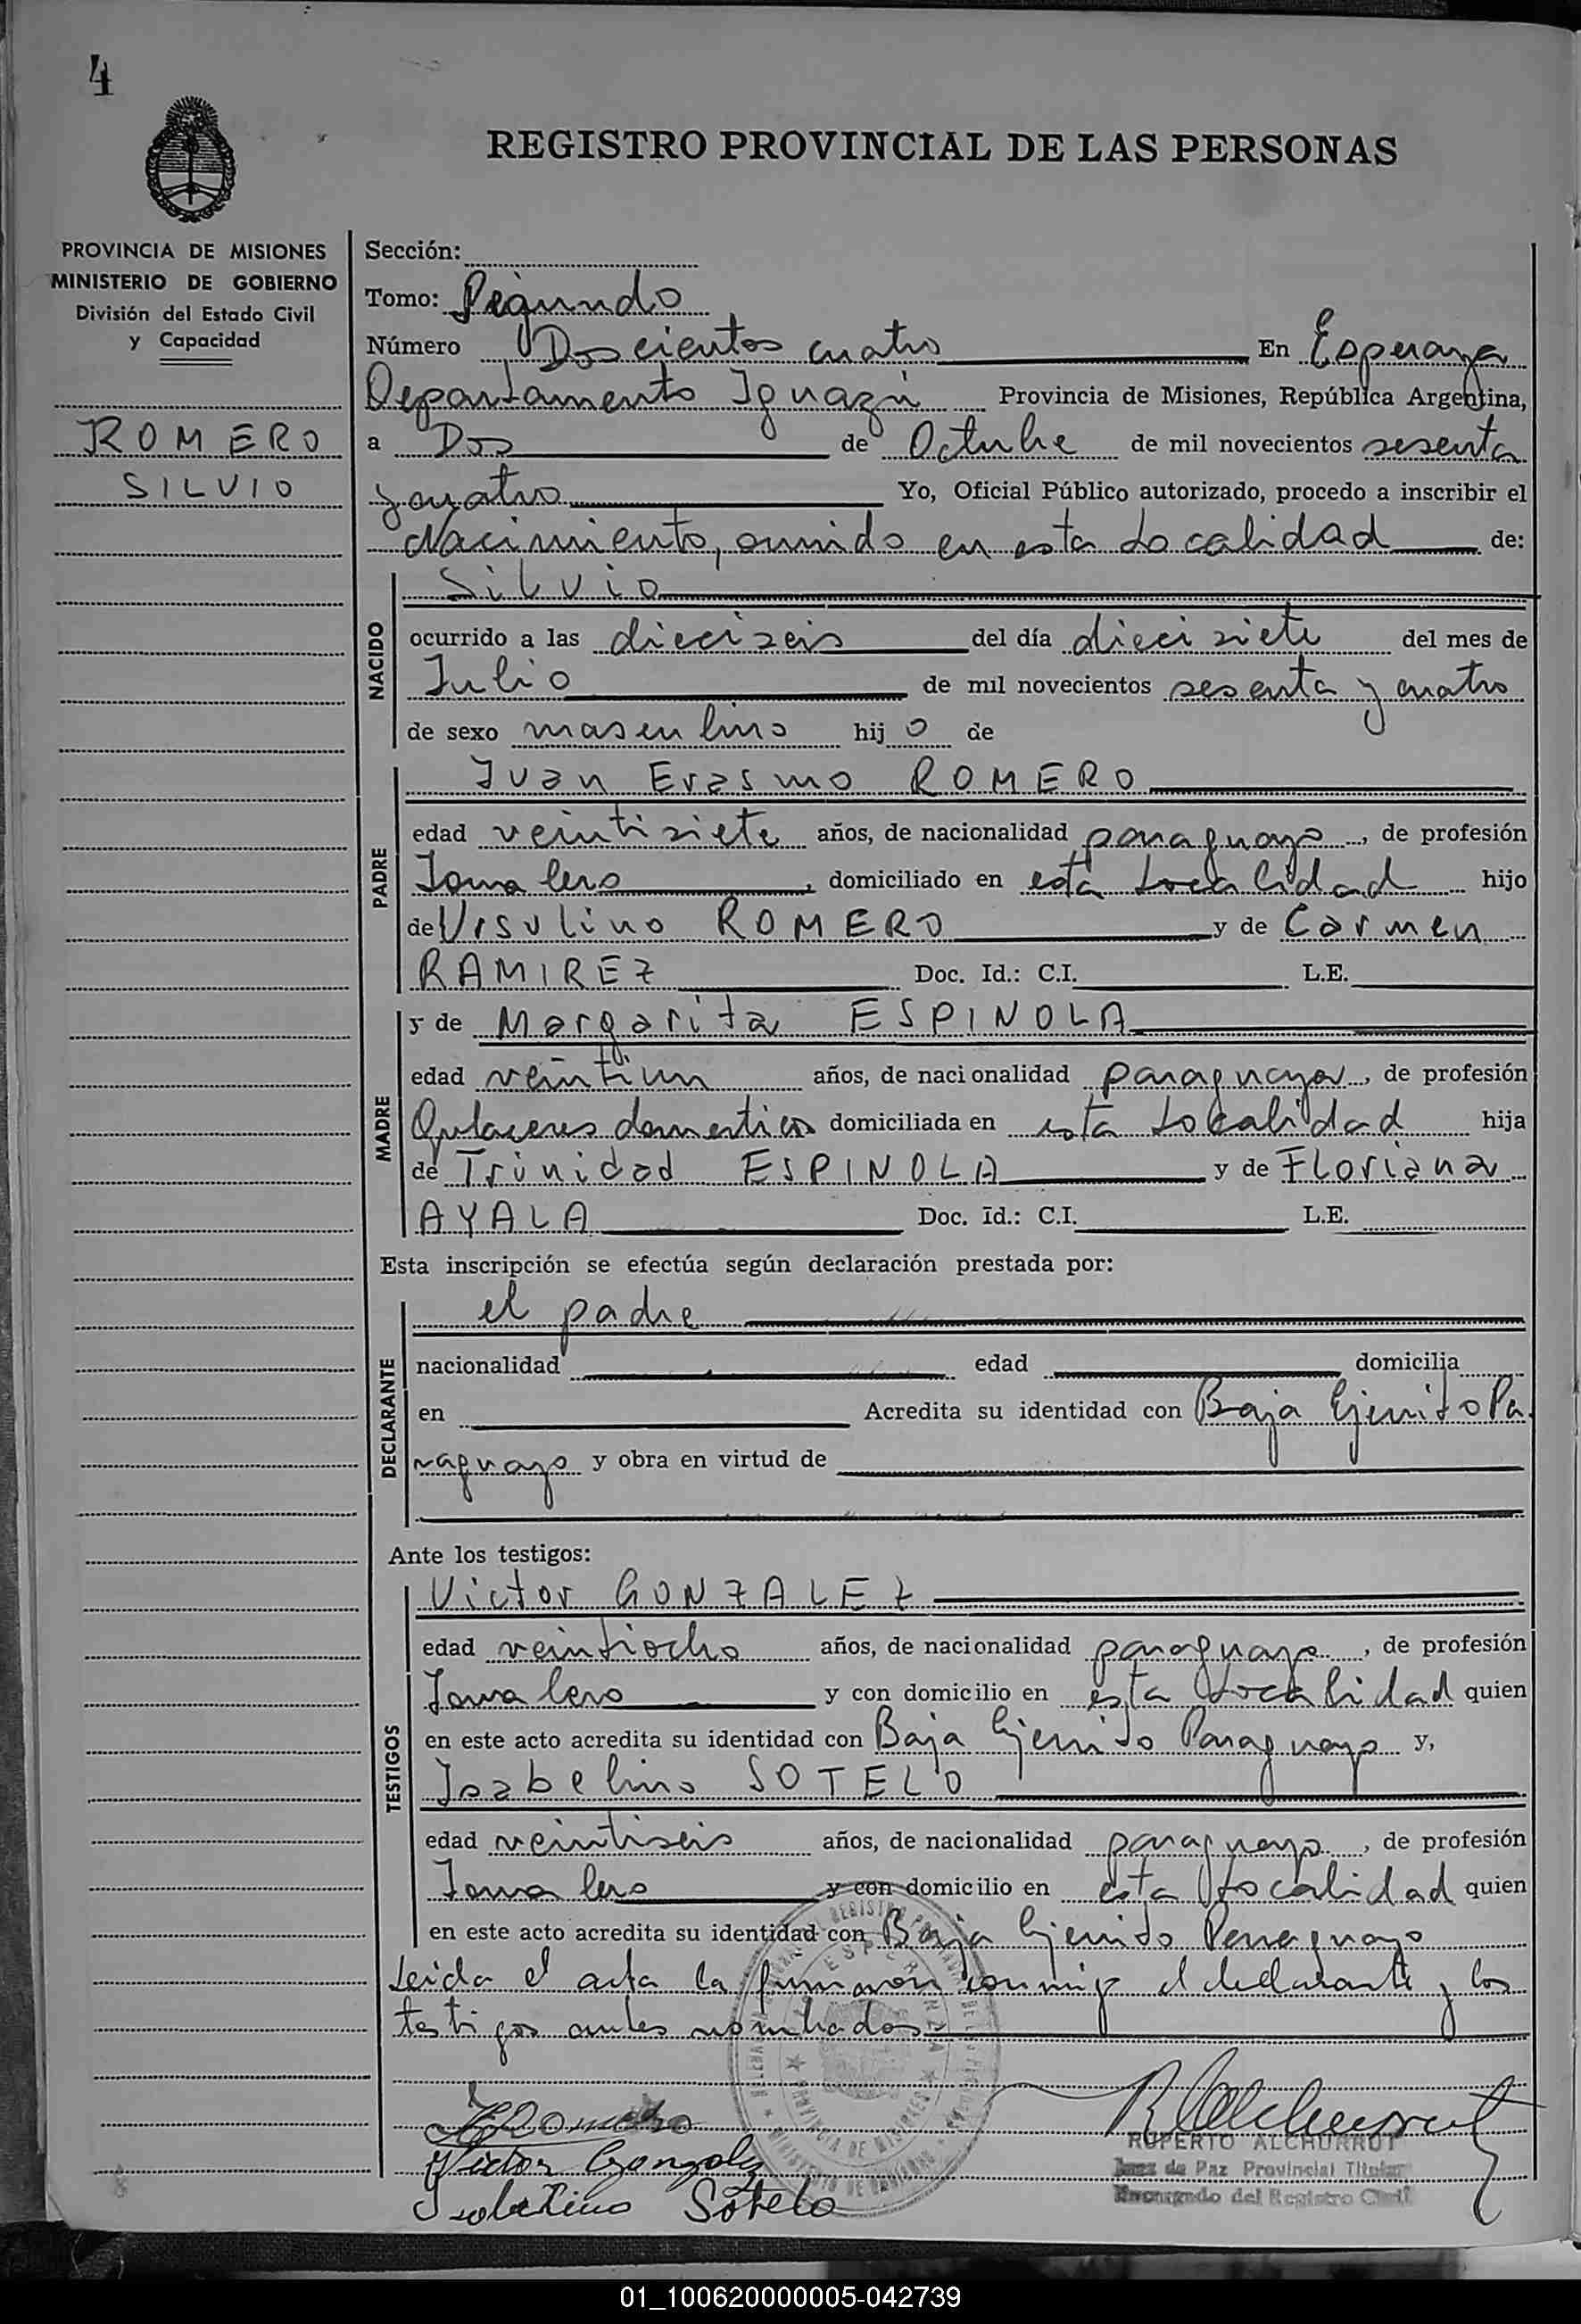 4
REGISTRO PROVINCIAL DE LAS PERSONAS
PROVINCIA DE MISIONES
MINISTERIO DE GOBIERNO
División del Estado Civil
y Capacidad
ROMERO
SILVIO
Sección:
Tomo: Segundo
Número Doscientos cuatro En Esperanza
Departamento Iguazú Provincia de Misiones, República Argentina,
a Dos de Octubre de mil novecientos sesenta
y cuatro Yo, Oficial Público autorizado, procedo a inscribir el
Nacimiento, ocurrido en esta Localidad de:
NACIDO
Silvio
ocurrido a las dieciseis del día dieci siete del mes de
Julio de mil novecientos sesenta y cuatro
de sexo masculino hij o de
PADRE
Juan Erasmo ROMERO
edad veintisiete años, de nacionalidad paraguayo, de profesión
Jornalero, domiciliado en esta Localidad hijo
de Ursulino ROMERO y de Carmen
RAMIREZ Doc. Id.: C.I. L.E.
MADRE
y de Margarita ESPINOLA
edad veintiun años, de nacionalidad paraguaya, de profesión
Quehaceres domesticos domiciliada en esta Localidad hija
de Trinidad ESPINOLA y de Floriana
AYALA Doc. Id.: C.I. L.E.
Esta inscripción se efectúa según declaración prestada por:
DECLARANTE
el padre
nacionalidad edad domicilia
en Acredita su identidad con Baja Ejercito Pa
raguayo y obra en virtud de
Ante los testigos:
TESTIGOS
Victor GONZALEZ
edad veintiocho años, de nacionalidad paraguayo, de profesión
Jornalero y con domicilio en esta Localidad quien
en este acto acredita su identidad con Baja Ejercito Paraguayo y,
Isabelino SOTELO
edad veintiseis años, de nacionalidad paraguayo, de profesión
Jornalero y con domicilio en esta Localidad quien
en este acto acredita su identidad con Baja Ejercito Paraguayo
Leida el acta la firmaron conmigo el declarante y los
testigos antes nombrados.-
JRomero
Victor Gonzalez
Isabelino Sotelo
RUPERTO ALCHURRUT
Juez de Paz Provincial Titular
Encargado del Registro Civil
01_100620000005-042739